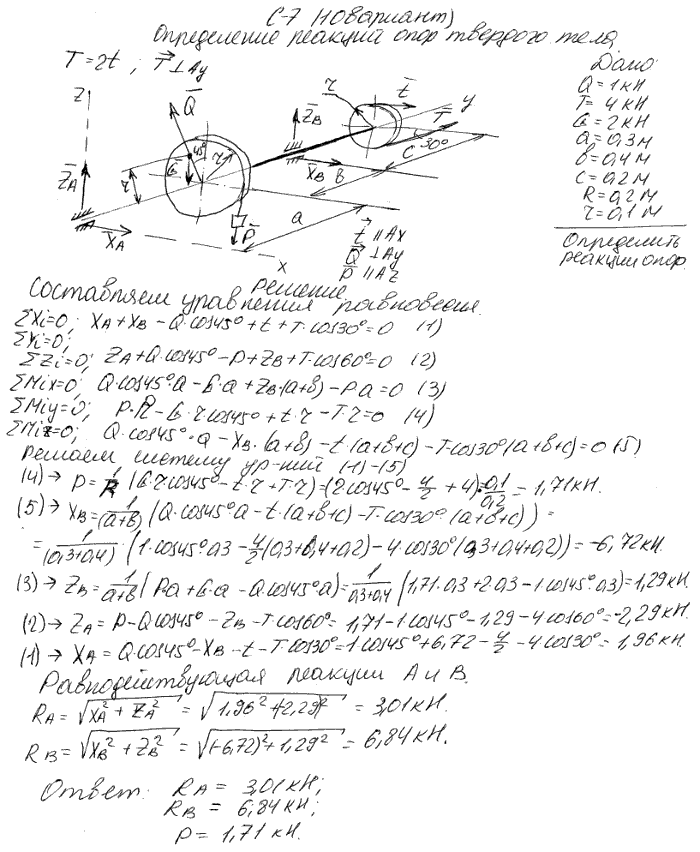 С-7 (10вариант)
Определение реакций опор твердого тела
T = 2t ; T ⊥ Ay
Дано:
Q = 1кН
T = 4 кН
G = 2кН
a = 0,3м
b = 0,4 м
c = 0,2 м
R = 0,2 м
r = 0,1 м
Определить
реакции опор.
Z
Q
45°
G
r
r
Z_A
X_A
P
a
x
Z_B
X_B
в
r
t
y
T
30°
C
t ∥ AX
Q ⊥ Ay
P ∥ AZ
Решение
Составляем уравнения равновесия.
ΣXi=0; X_A + X_B - Q·cos45° + t + T·cos30° = 0 (1)
ΣYi=0;
ΣZi=0; Z_A + Q·cos45° - P + Z_B + T·cos60° = 0 (2)
ΣMix=0; Q·cos45°·a - G·a + Z_B·(a+b) - P·a = 0 (3)
ΣMiy=0; P·R - G·r cos45° + t·r - T·r = 0 (4)
ΣMiz=0; Q·cos45°·a - X_B·(a+b) - t·(a+b+c) - T·cos30°(a+b+c) = 0 (5)
Решаем систему ур-ний (1)-(5)
(4) → P = 1/R (G·r cos45° - t·r + T·r) = (2cos45° - 4/2 + 4)·0,1/0,2 = 1,71кН.
(5) → X_B = 1/(a+b) (Q·cos45°·a - t·(a+b+c) - T·cos30°·(a+b+c)) =
= 1/(0,3+0,4) · (1·cos45°·0,3 - 4/2(0,3+0,4+0,2) - 4·cos30°(0,3+0,4+0,2)) = -6,72кН.
(3) → Z_B = 1/a+b (P·a + G·a - Q·cos45°·a) = 1/0,3+0,4 (1,71·0,3 + 2·0,3 - 1·cos45°·0,3) = 1,29кН
(2) → Z_A = P - Q·cos45° - Z_B - T·cos60° = 1,71 - 1·cos45° - 1,29 - 4cos60° = -2,29кН.
(1) → X_A = Q·cos45° - X_B - t - T·cos30° = 1cos45° + 6,72 - 4/2 - 4cos30° = 1,96кН.
Равнодействующая реакции А и В.
R_A = √(X_A² + Z_A²) = √(1,96² + (-2,29)²) = 3,01кН.
R_B = √(X_B² + Z_B²) = √((-6,72)² + 1,29²) = 6,84кН.
Ответ: R_A = 3,01кН;
R_B = 6,84кН;
P = 1,71 кН.